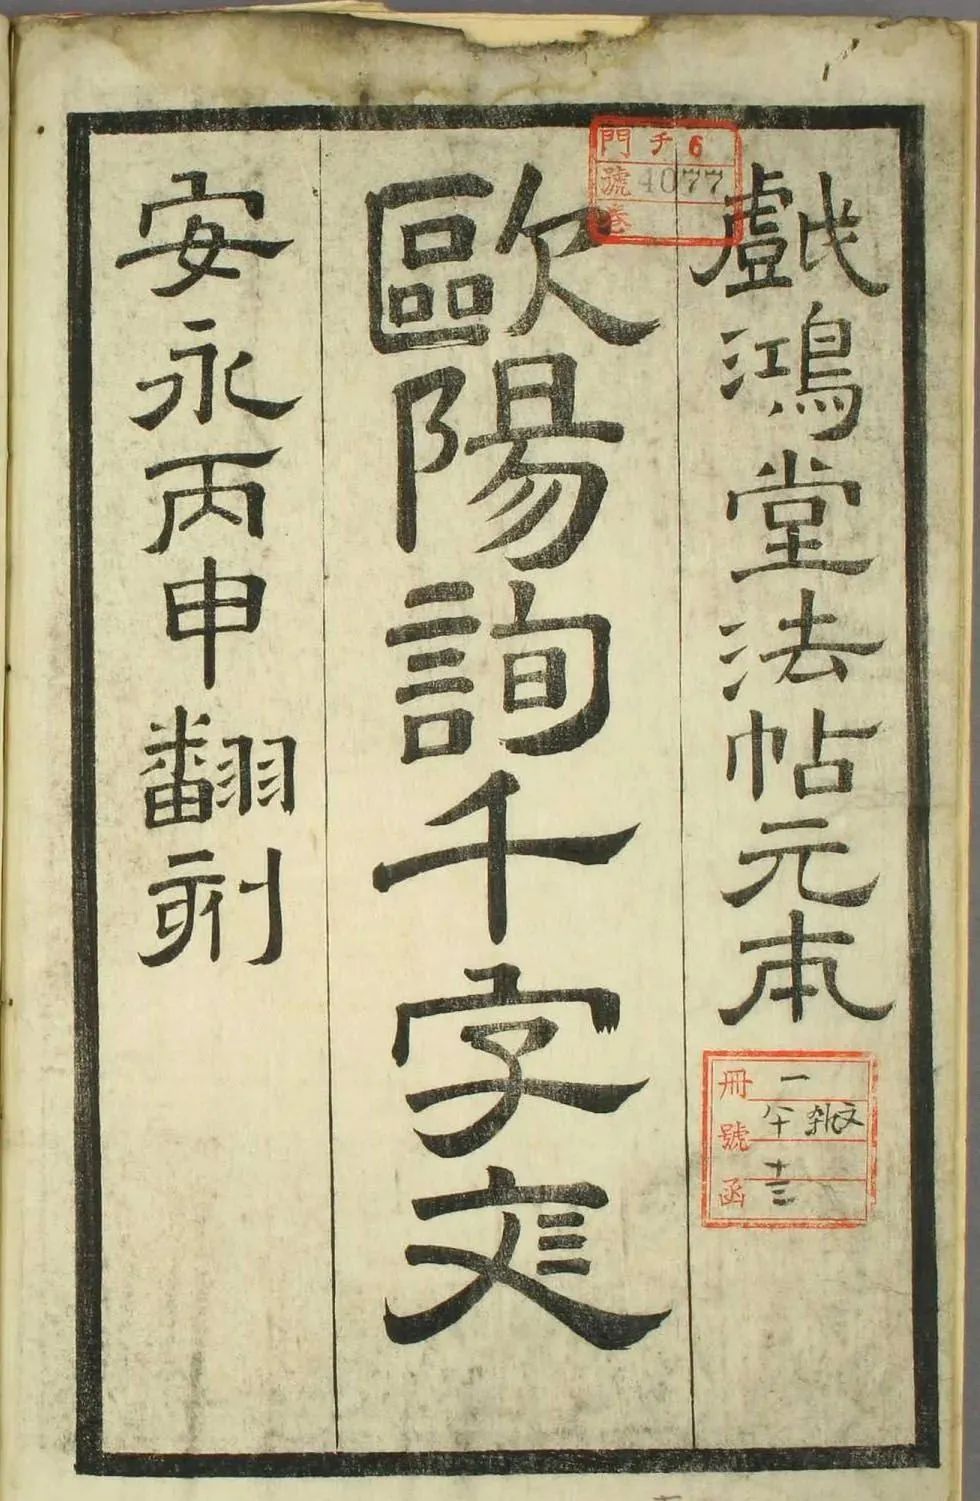 戯鴻堂法帖元本
歐陽詢千字文
安永丙申翻刻
門チ6
號4077
卷
冊一
號
函十三